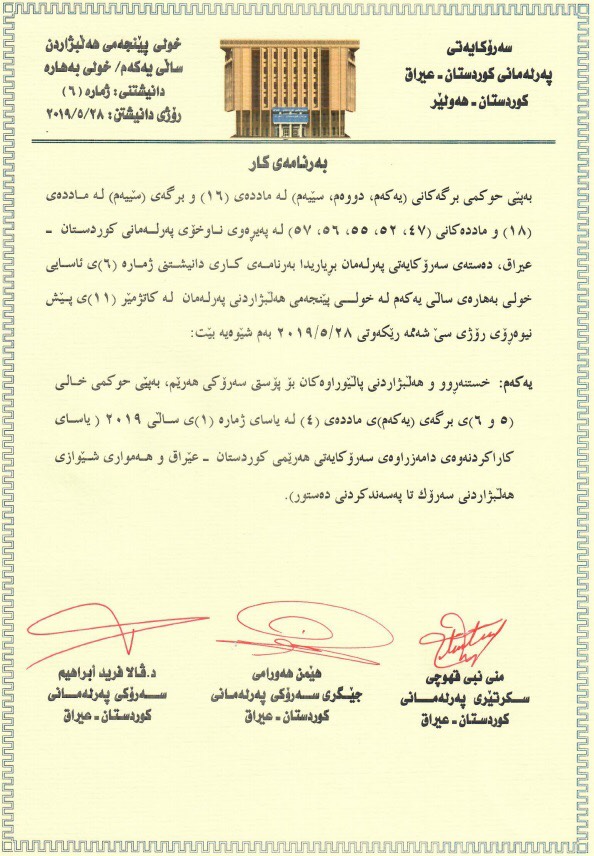 سەرۆکایەتی
پەرلەمانی کوردستان - عیراق
کوردستان - هەولێر
خولی پێنجەمی هەڵبژاردن
ساڵی یەکەم/ خولی بەهارە
دانیشتنی: ژمارە (٦)
رۆژی دانیشتن: ٢٠١٩/٥/٢٨
بەرنامەی کار
بەپێی حوکمی برگەکانی (یەکەم، دووەم، سێیەم) لە ماددەی (١٦) و برگەی (سێیەم) لە ماددەی
(١٨) و ماددەکانی (٤٧، ٥٢، ٥٥، ٥٦، ٥٧) لە پەیرەوی ناوخۆی پەرلەمانی کوردستان -
عیراق، دەستەی سەرۆکایەتی پەرلەمان بڕیاریدا بەرنامەی کاری دانیشتنی ژمارە (٦)ی ئاسایی
خولی بەهارەی ساڵی یەکەم لە خولی پێنجەمی هەڵبژاردنی پەرلەمان لە کاتژمێر (١١)ی پێش
نیوەڕۆی رۆژی سێ شەممە رێکەوتی ٢٠١٩/٥/٢٨ بەم شێوەیە بێت:
یەکەم: خستنەڕوو و هەڵبژاردنی پاڵێوراوەکان بۆ پۆستی سەرۆکی هەرێم، بەپێی حوکمی خالی
(٥ و ٦)ی برگەی (یەکەم)ی ماددەی (٤) لە یاسای ژمارە (١)ی ساڵی ٢٠١٩ ( یاسای
کاراکردنەوەی دامەزراوەی سەرۆکایەتی هەرێمی کوردستان - عێراق و هەمواری شێوازی
هەڵبژاردنی سەرۆك تا پەسەندکردنی دەستور).
منی نبی قهوچی
سکرتێری پەرلەمانی
کوردستان - عیراق
هێمن هەورامی
جێگری سەرۆکی پەرلەمانی
کوردستان - عیراق
د.ڤالا فرید أبراهیم
سەرۆکی پەرلەمانی
کوردستان - عیراق